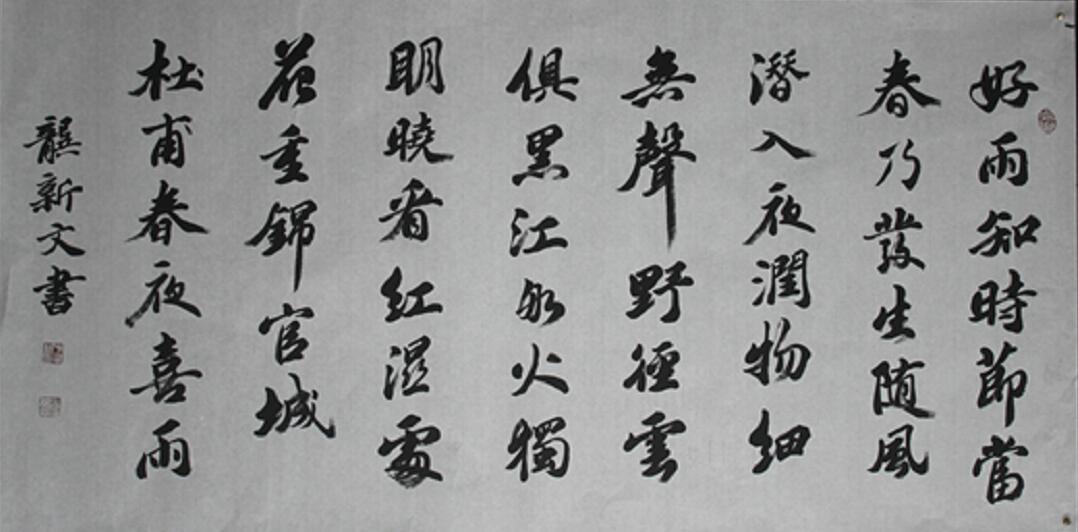 好雨知時節當
春乃發生随風
潛入夜潤物細
無聲野徑雲
俱黑江船火獨
明曉看紅濕處
花重錦官城
杜甫春夜喜雨
龔新文書